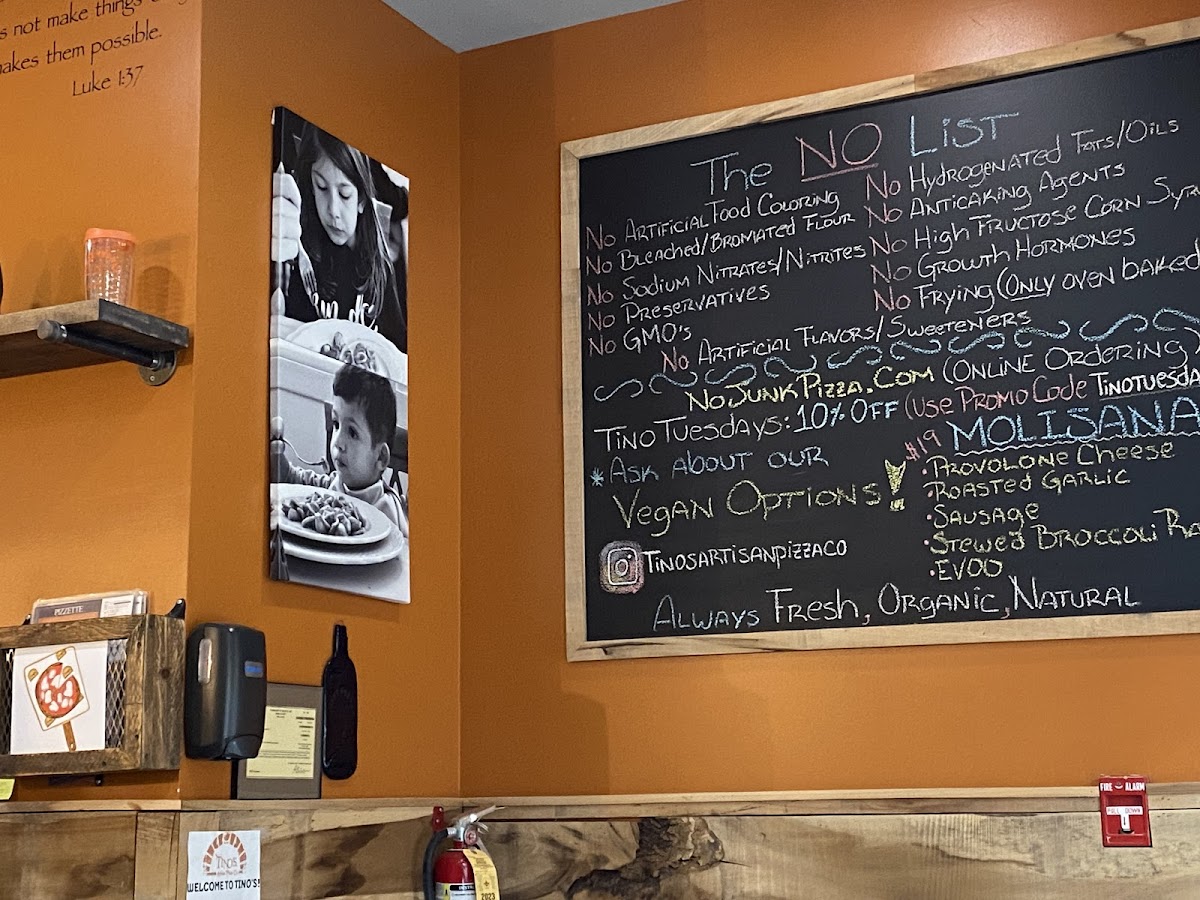 not make things
makes them possible.
Luke 1:37
The NO List
No Artificial Food Coloring
No Bleached/Bromated Flour
No Sodium Nitrates/Nitrites
No Preservatives
No GMO's
No Hydrogenated Fats/Oils
No Anticaking Agents
No High Fructose Corn
No Growth Hormones
No Frying (Only oven baked
No Artificial Flavors/Sweeteners
NoJunkPizza.Com (Online Ordering)
Tino Tuesdays: 10% Off (Use Promo Code
*Ask about our
Vegan Options!
Tinosartisanpizzaco
$19 MOLISANA
•Provolone Cheese
•Roasted Garlic
•Sausage
•Stewed Broccoli
•EVOO
Always Fresh, Organic, Natural
PIZZETTE
TINO'S
WELCOME TO TINO'S!
2023
FIRE ALARM
PULL DOWN